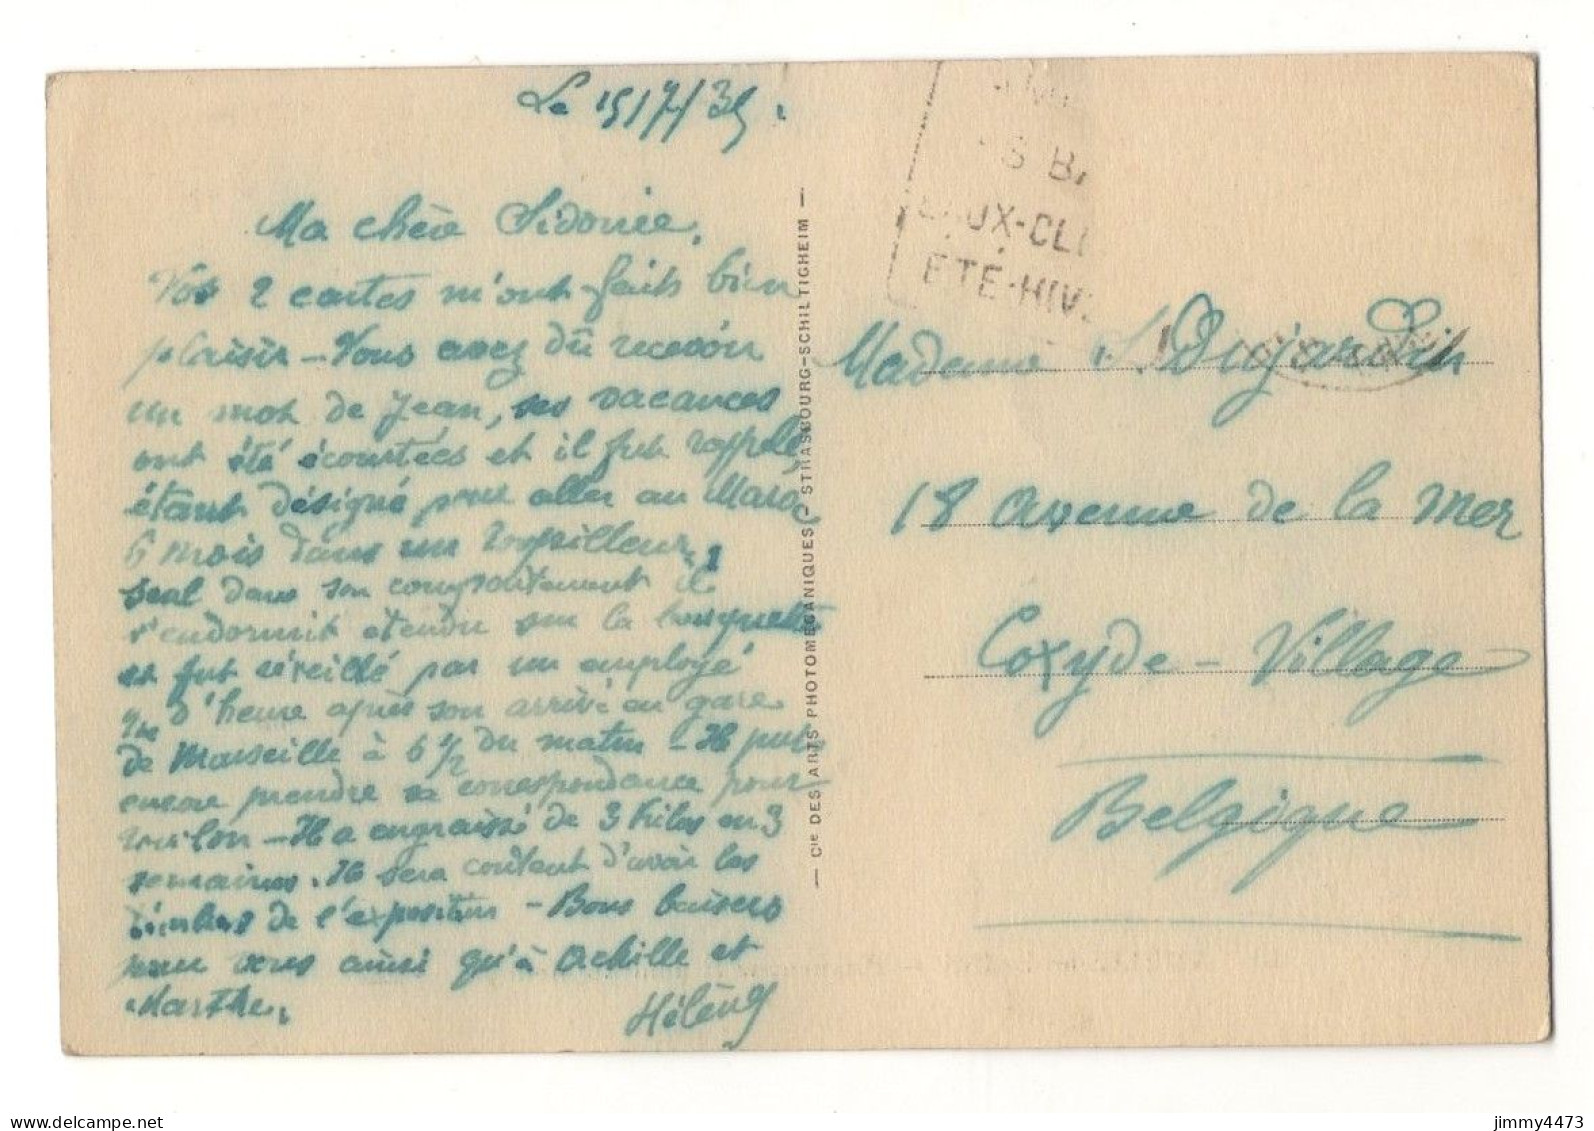 Le 15/7/35.
Ma chère Sidonie,
Vos 2 cartes m'ont faits bien
plaisir - Vous avez dû recevoir
un mot de Jean, ses vacances
ont été écourtées et il fut rappelé,
étant désigné pour aller au Maroc
6 mois dans un torpilleur,
seul dans son compartement il
s'endormit etendu sur la banquette
et fut réveillé par un employé
d'heure après son arrivé en gare
de Marseille à 6 1/2 du matin - Il put
encore prendre sa correspondance pour
Toulon - Il a engraissé de 3 kilos en 3
semaines. Il sera content d'avoir les
timbres de l'exposition - Bons baisers
pour vous ainsi qu'à Achille et
Marthe.
Hélène
— Cie DES ARTS PHOTOMECANIQUES - STRASBOURG-SCHILTIGHEIM —
S BA
EAUX-CL
ETÉ-HIV
Madame S. Dujardin
18 avenue de la mer
Coxyde - Village
Belgique
jimmy4473